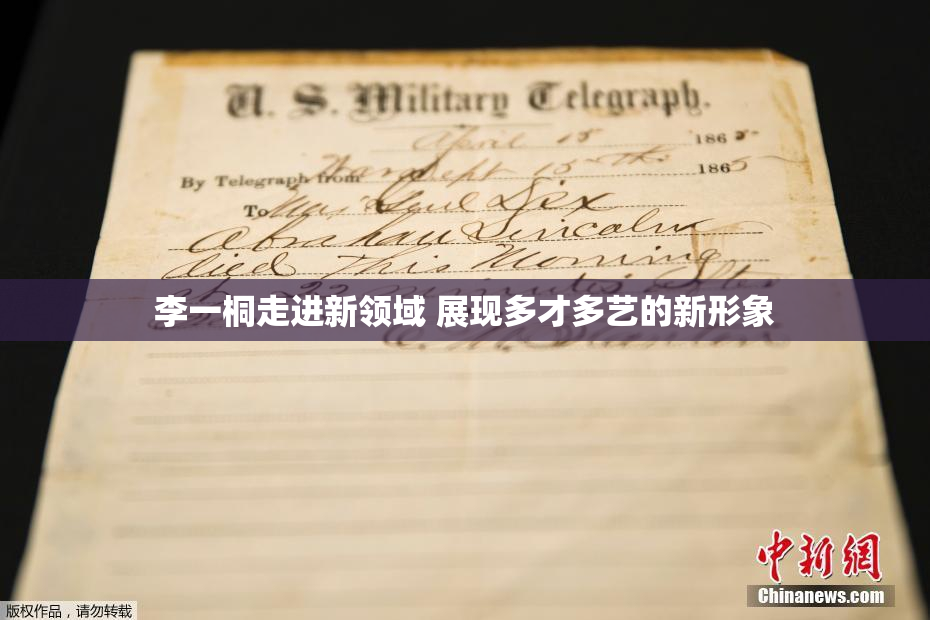 U. S. Military Telegraph.
April 15 1865
By Telegraph from War Dept 15th 1865
To Maj Genl Dix
Abraham Lincoln
died This Morning
at 22 minutes after
李一桐走进新领域 展现多才多艺的新形象
中新網
Chinanews.com
版权作品，请勿转载